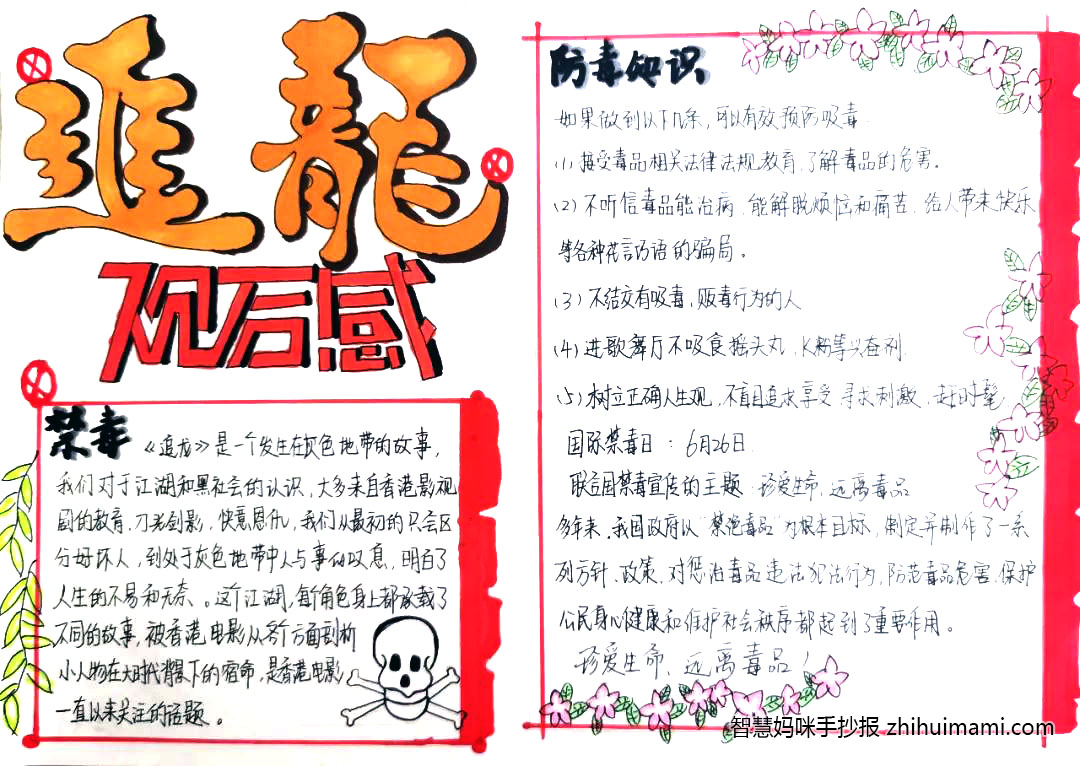 追龍
观后感
禁毒
《追龙》是一个发生在灰色地带的故事，
我们对于江湖和黑社会的认识，大多来自香港影视
剧的教育，刀光剑影，快意恩仇，我们从最初的只会区
分好坏人，到处于灰色地带中人与事的叹息，明白了
人生的不易和无奈。这个江湖，每个角色身上都承载了
不同的故事，被香港电影从各个方面剖析
小人物在大时代背景下的宿命，是香港电影
一直以来关注的话题。
防毒知识
如果做到以下几条，可以有效预防吸毒
(1) 接受毒品相关法律法规教育，了解毒品的危害。
(2) 不听信毒品能治病，能解脱烦恼和痛苦，给人带来快乐
等各种花言巧语的骗局。
(3) 不结交有吸毒，贩毒行为的人
(4) 进歌舞厅不吸食摇头丸，K粉等兴奋剂
(5) 树立正确人生观，不盲目追求享受 寻求刺激，赶时髦
国际禁毒日：6月26日
联合国禁毒宣传的主题：珍爱生命，远离毒品
多年来，我国政府以"禁绝毒品"为根本目标，制定并制作了一系
列方针、政策，对惩治毒品违法犯法行为，防范毒品危害，保护
公民身心健康和维护社会秩序都起到了重要作用。
珍爱生命、远离毒品！
智慧妈咪手抄报 zhihuimami.com